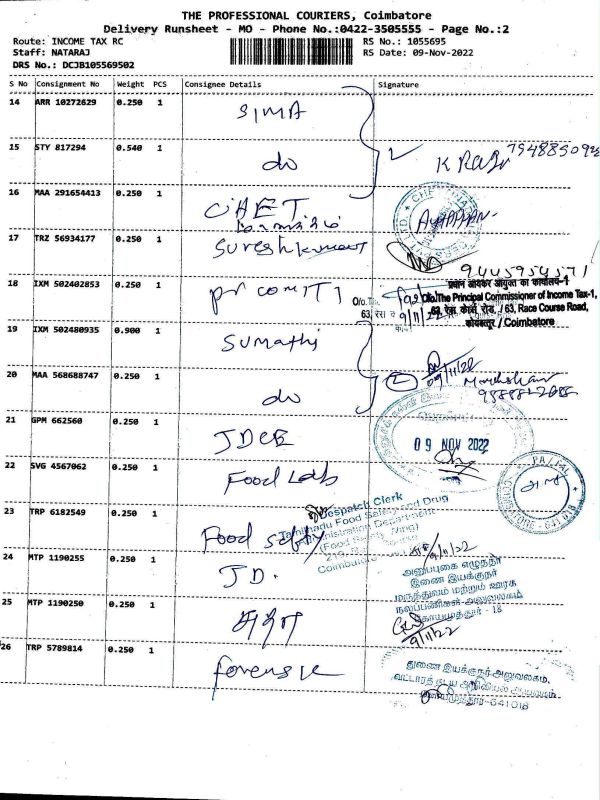 THE PROFESSIONAL COURIERS, Coimbatore
Delivery Runsheet - MO - Phone No.:0422-3505555 - Page No.:2
Route: INCOME TAX RC
Staff: NATARAJ
DRS No.: DCJB105569502
RS No.: 1055695
RS Date: 09-Nov-2022
S No Consignment No Weight PCS Consignee Details Signature
14 ARR 10272629 0.250 1 SIMA
15 STY 817294 0.540 1 do
16 MAA 291654413 0.250 1
17 TRZ 56934177 0.250 1 Sureshkumar
9445954571
18 IXM 502402853 0.250 1
प्रधान आयकर आयुक्त का कार्यालय-1
O/o.The Principal Commissioner of Income Tax-1,
63, रेस कोर्स रोड, / 63, Race Course Road,
कोयम्बत्तूर / Coimbatore
19 IXM 502480935 0.900 1 Sumathi
20 MAA 568688747 0.250 1 do
21 GPM 662560 0.250 1
09 NOV 2022
22 SVG 4567062 0.250 1 Food Lab
23 TRP 6182549 0.250 1 Food safety
Despatch Clerk
Tamilnadu Food Safety and Drug
Administration Department
(Food Safety Wing)
24 MTP 1190255 0.250 1 JD.
9/11/22
அனுப்புகை எழுத்தர்
இணை இயக்குநர்
மருத்துவம் மற்றும் ஊரக
நலப்பணிகள் அலுவலகம்
கோயமுத்தூர் - 18
25 MTP 1190250 0.250 1
9/11/22
26 TRP 5789814 0.250 1 forensic
துணை இயக்குநர் அலுவலகம்,
கோயமுத்தூர்-641018